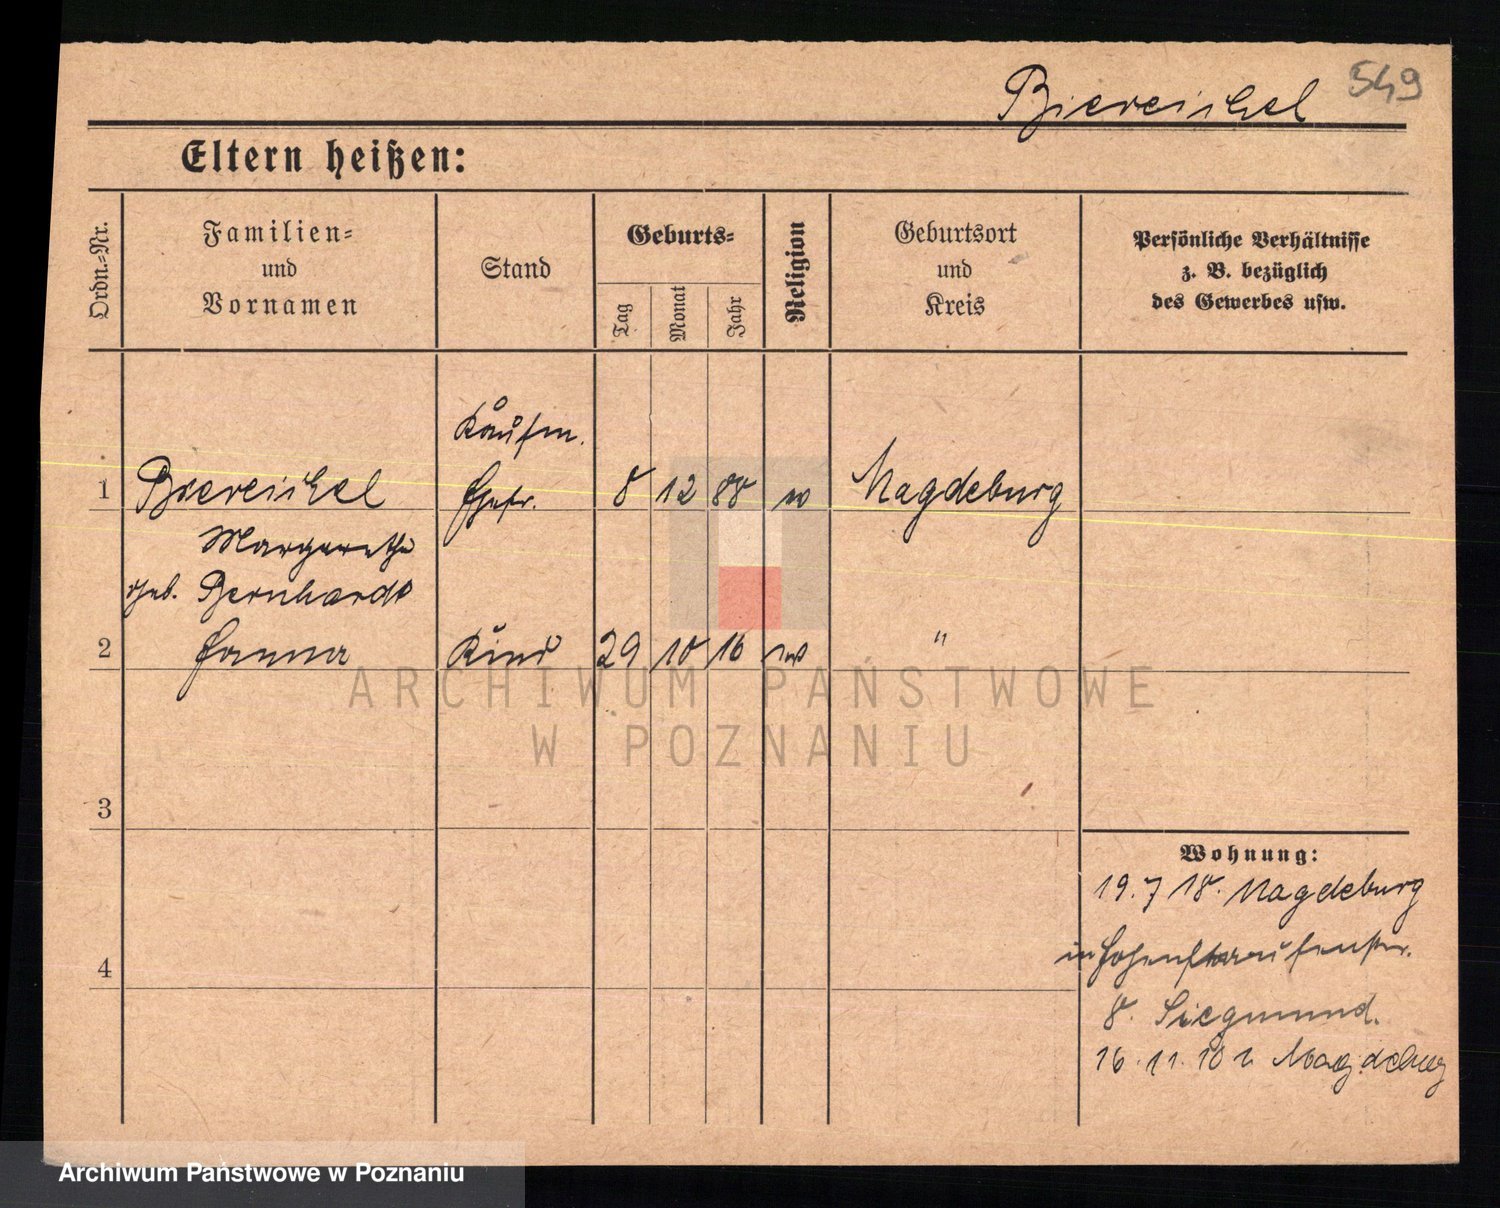 549
Biereichel
Eltern heißen:
Ordn.-Nr.
Familien-
und
Vornamen
Stand
Geburts-
Tag
Monat
Jahr
Religion
Geburtsort
und
Kreis
Persönliche Verhältnisse
z. B. bezüglich
des Gewerbes usw.
Kaufm.
1 Biereichel Ehefr. 8 12 88 Magdeburg
Margarethe
geb. Bernhardt
2 Hanna Kind 29 10 16 "
3
4
Wohnung:
19. 7 18. Magdeburg
in Hohenstaufenstr.
8. Siegmund.
16. 11. 18 Magdeburg
ARCHIWUM PAŃSTWOWE
W POZNANIU
Archiwum Państwowe w Poznaniu